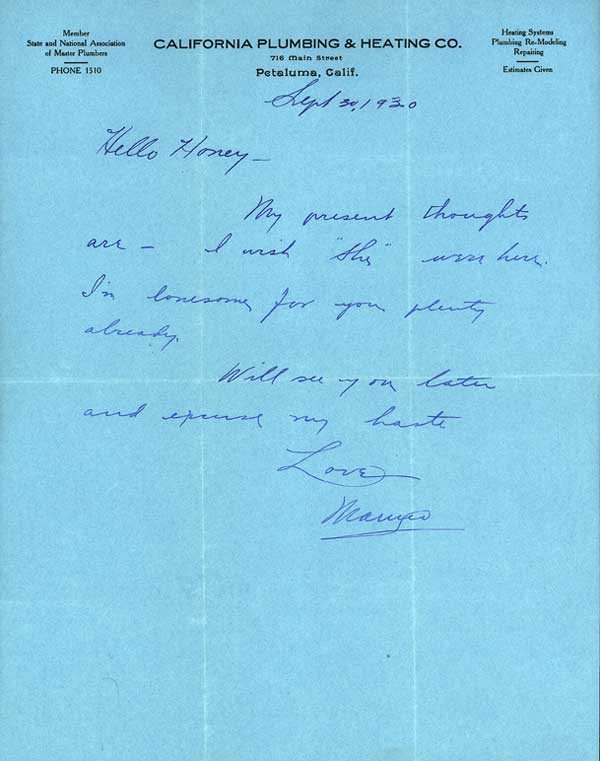 Member
State and National Association
of Master Plumbers
PHONE 1510
CALIFORNIA PLUMBING & HEATING CO.
716 Main Street
Petaluma, Calif.
Heating Systems
Plumbing Re-Modeling
Repairing
Estimates Given
Sept 30, 1930
Hello Honey —
My present thoughts
are — I wish "she" were here.
I'm lonesome for you plenty
already.
Will see you later
and excuse my haste
Love